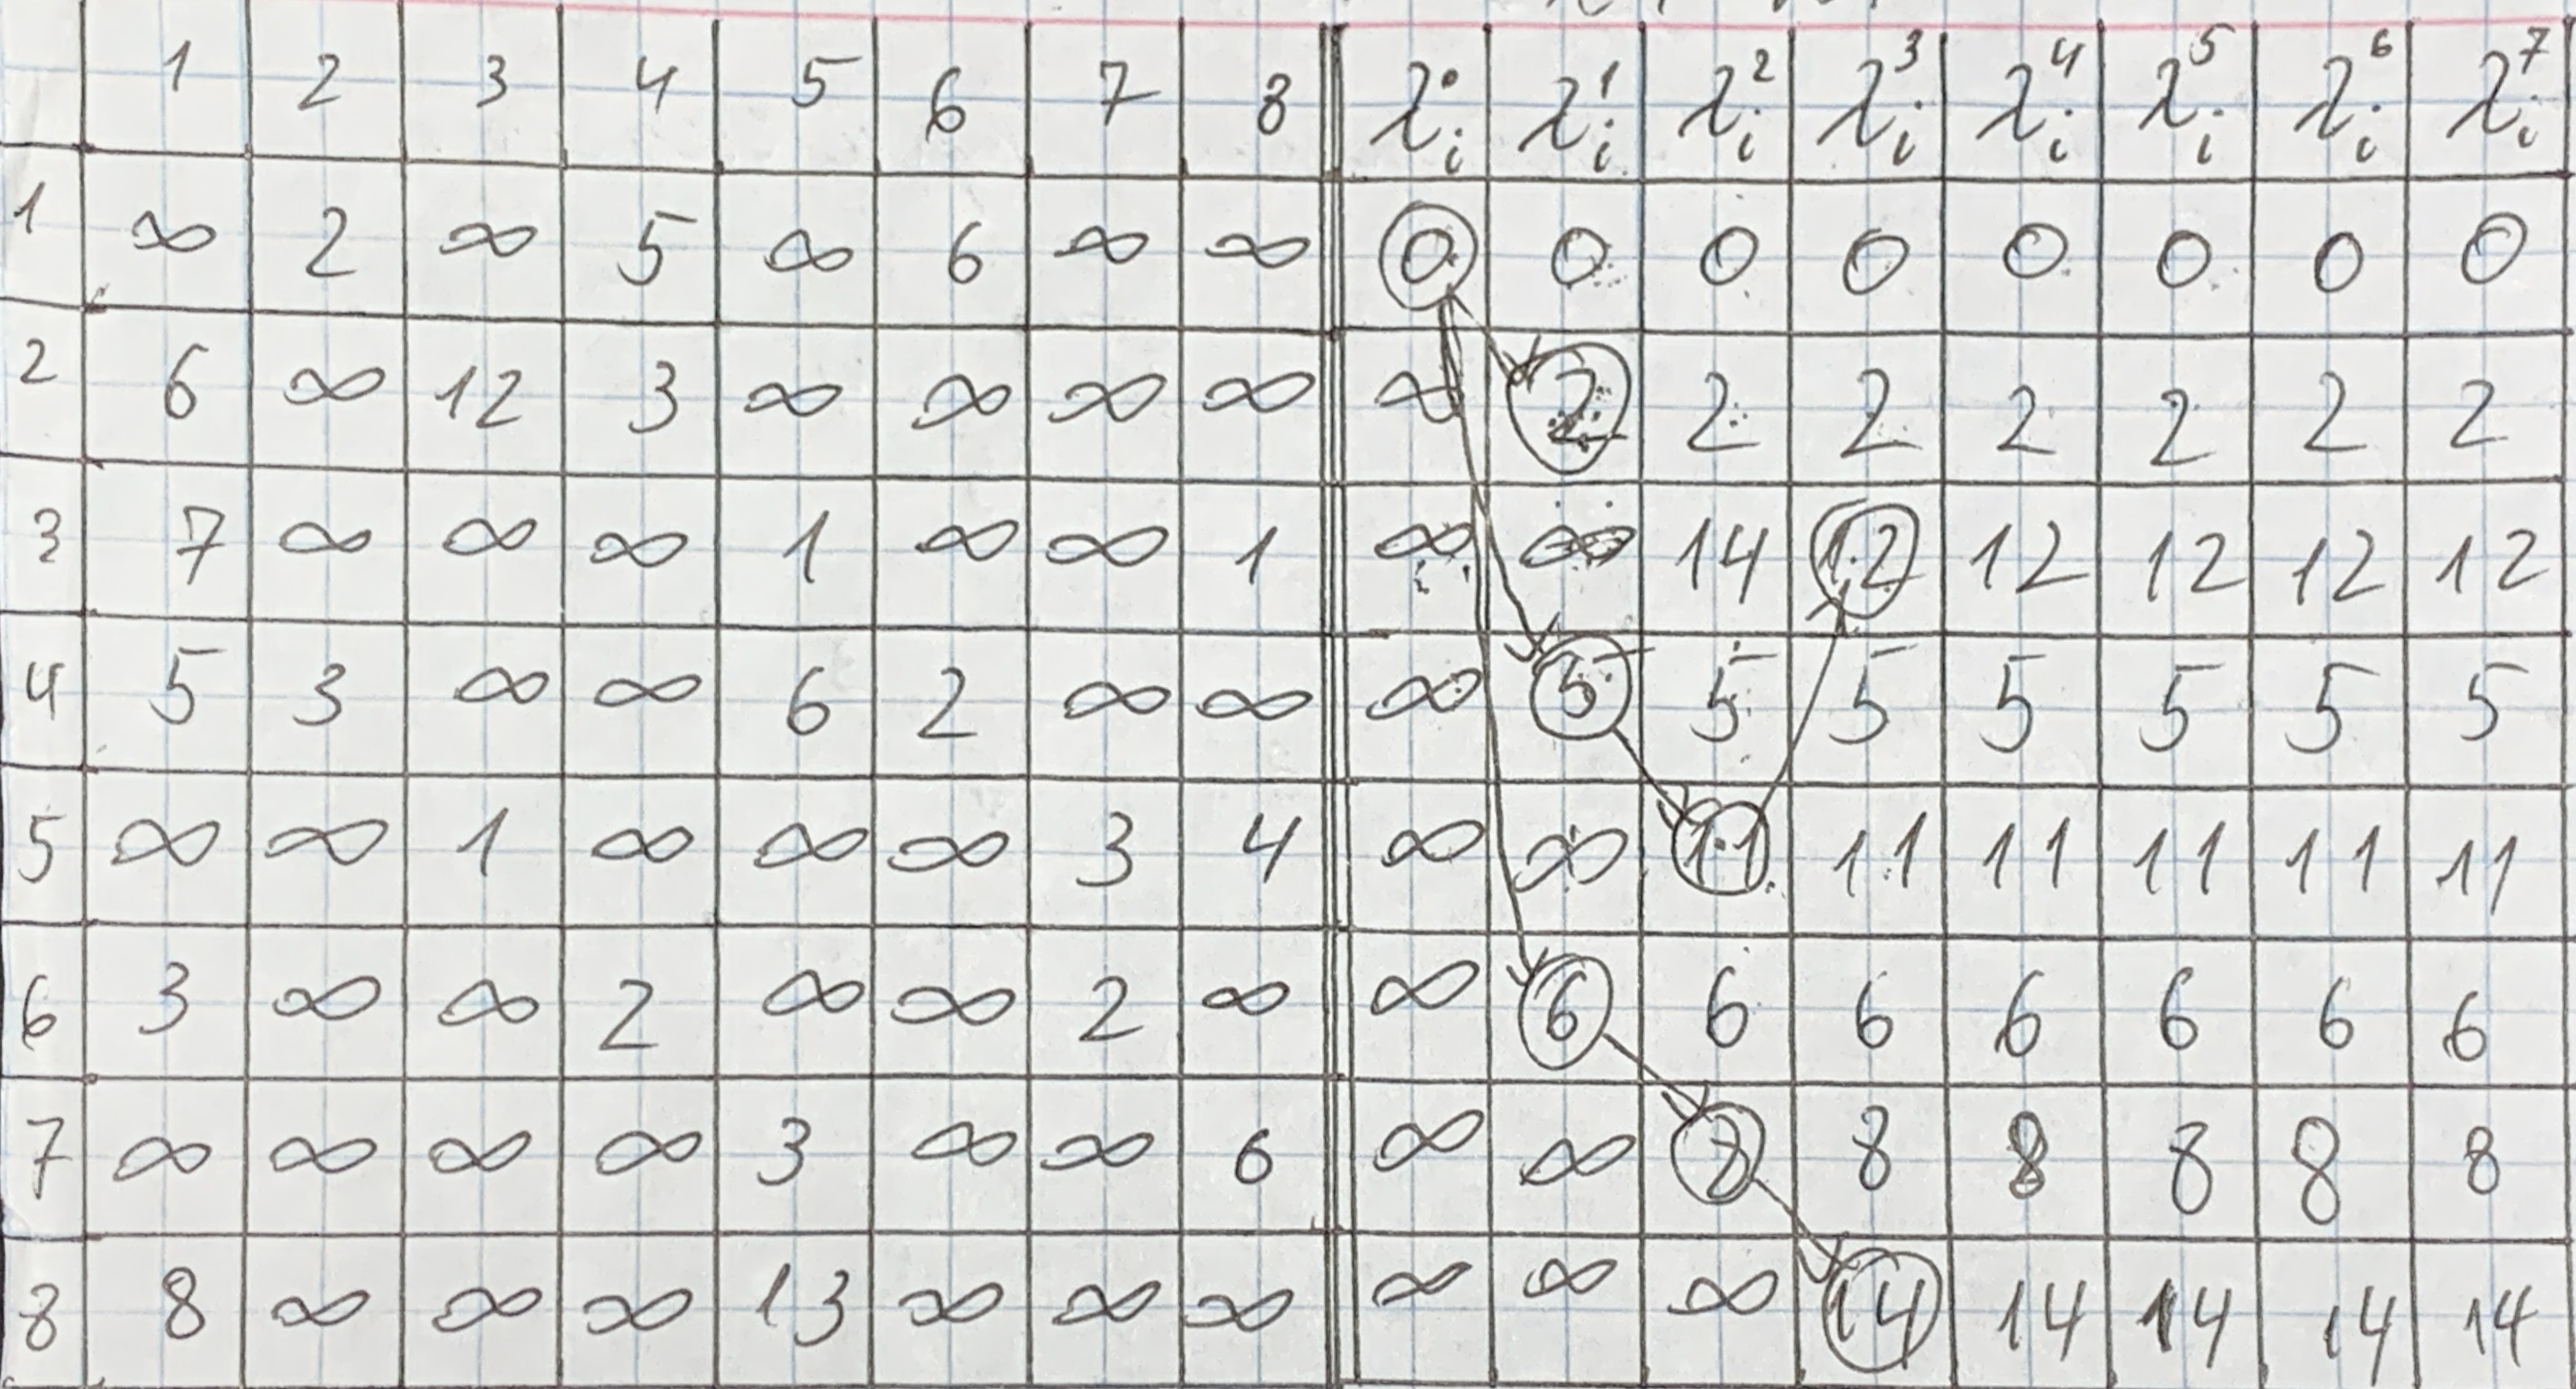 1 2 3 4 5 6 7 8 λᵢ⁰ λᵢ¹ λᵢ² λᵢ³ λᵢ⁴ λᵢ⁵ λᵢ⁶ λᵢ⁷
1 ∞ 2 ∞ 5 ∞ 6 ∞ ∞ 0 0 0 0 0 0 0 0
2 6 ∞ 12 3 ∞ ∞ ∞ ∞ ∞ 2 2 2 2 2 2 2
3 7 ∞ ∞ ∞ 1 ∞ ∞ 1 ∞ ∞ 14 12 12 12 12 12
4 5 3 ∞ ∞ 6 2 ∞ ∞ ∞ 5 5 5 5 5 5 5
5 ∞ ∞ 1 ∞ ∞ ∞ 3 4 ∞ ∞ 11 11 11 11 11 11
6 3 ∞ ∞ 2 ∞ ∞ 2 ∞ ∞ 6 6 6 6 6 6 6
7 ∞ ∞ ∞ ∞ 3 ∞ ∞ 6 ∞ ∞ 8 8 8 8 8 8
8 8 ∞ ∞ ∞ 13 ∞ ∞ ∞ ∞ ∞ ∞ 14 14 14 14 14